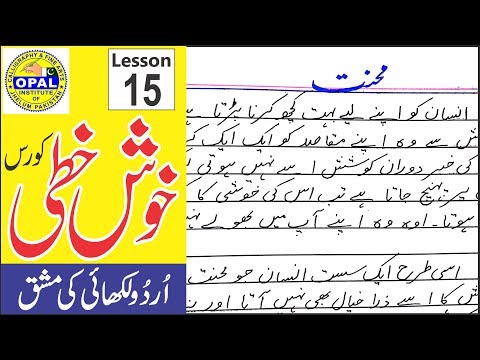 CALLIGRAPHY & FINE ARTS
OPAL
INSTITUTE
OF
JHELUM PAKISTAN
Lesson
15
خوش خطی
کورس
اُردو لکھائی کی مشق
محنت
انسان کو اپنے لیے بہت کچھ کرنا پڑتا ہے
ش سے وہ اپنے مقاصد کو ایک ایک کر
کی خبر دوران کوشش اسے نہیں ہوتی ل
پر پہنچ جاتا ہے تب اس کی خوشی کا ک
ہوتا۔ اوہ وہ اپنے آپ میں پھولے نہیں
اسی طرح ایک سست انسان جو محنت
ش کا اسے ذرا خیال بھی نہیں آتا اور یہ